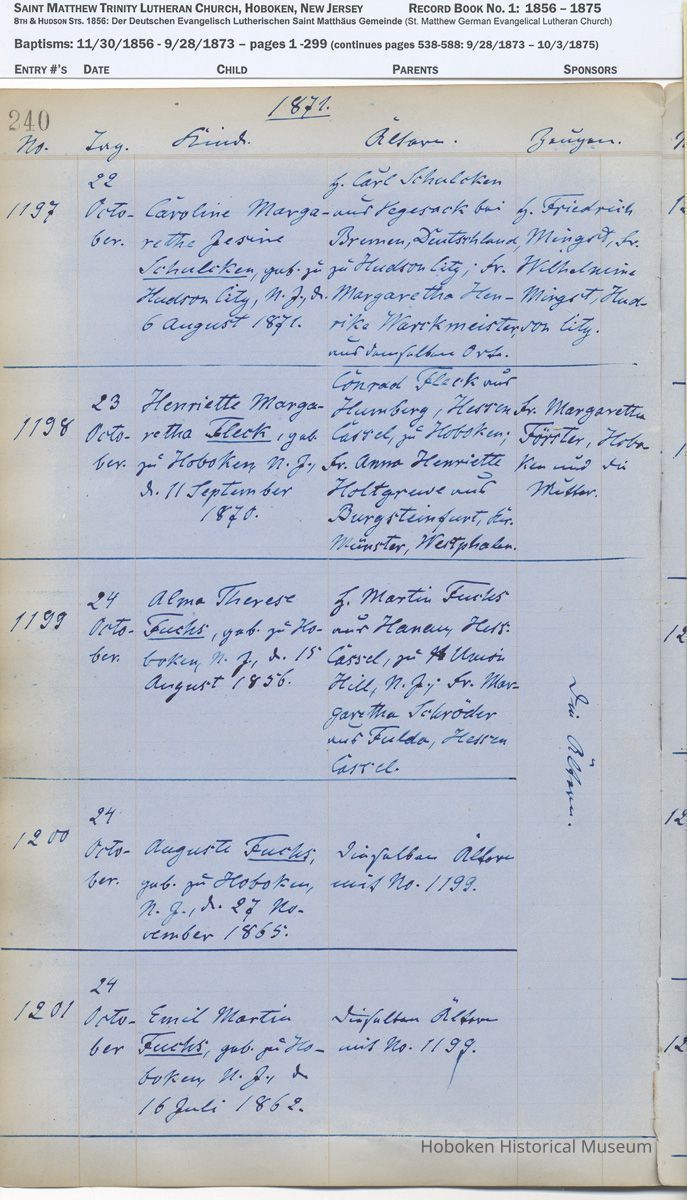 SAINT MATTHEW TRINITY LUTHERAN CHURCH, HOBOKEN, NEW JERSEY RECORD BOOK NO. 1: 1856 – 1875
8TH & HUDSON STS. 1856: Der Deutschen Evangelisch Lutherischen Saint Matthäus Gemeinde (St. Matthew German Evangelical Lutheran Church)
Baptisms: 11/30/1856 - 9/28/1873 – pages 1 -299 (continues pages 538-588: 9/28/1873 – 10/3/1875)
ENTRY #'S DATE CHILD PARENTS SPONSORS
240
1871.
No. Tag. Kind. Ältern. Zeugen.
1197
22
Octo-
ber.
Caroline Marga-
retha Gesine
Schulcken, geb. zu
Hudson City, N. J., d.
6 August 1871.
H. Carl Schulcken
aus Vegesack bei
Bremen, Deutschland,
zu Hudson City; Fr.
Margaretha Hen-
rika Warckmeister,
aus demselben Orte.
H. Friedrich
Mingst, Fr.
Wilhelmine
Mingst, Hud-
son City.
1198
23
Octo-
ber.
Henriette Marga-
retha Fleck, geb.
zu Hoboken, N. J.,
d. 11 September
1870.
Conrad Fleck aus
Humberg, Hessen
Cassel, zu Hoboken;
Fr. Anna Henriette
Holtgreve aus
Burgsteinfurt, Kr.
Münster, Westphalen.
Fr. Margaretha
Förster, Hobo-
ken und die
Mutter.
1199
24
Octo-
ber.
Alma Therese
Fuchs, geb. zu Ho-
boken, N. J., d. 15
August 1856.
H. Martin Fuchs
aus Hanau, Hess.
Cassel, zu Union
Hill, N. J.; Fr. Mar-
garetha Schröder
aus Fulda, Hessen
Cassel.
Die Ältern.
1200
24
Octo-
ber.
Auguste Fuchs,
geb. zu Hoboken,
N. J., d. 27 No-
vember 1865.
Dieselben Ältern
mit No. 1199.
1201
24
Octo-
ber
Emil Martin
Fuchs, geb. zu Ho-
boken, N. J., d
16 Juli 1862.
Dieselben Ältern
mit No. 1199.
Hoboken Historical Museum